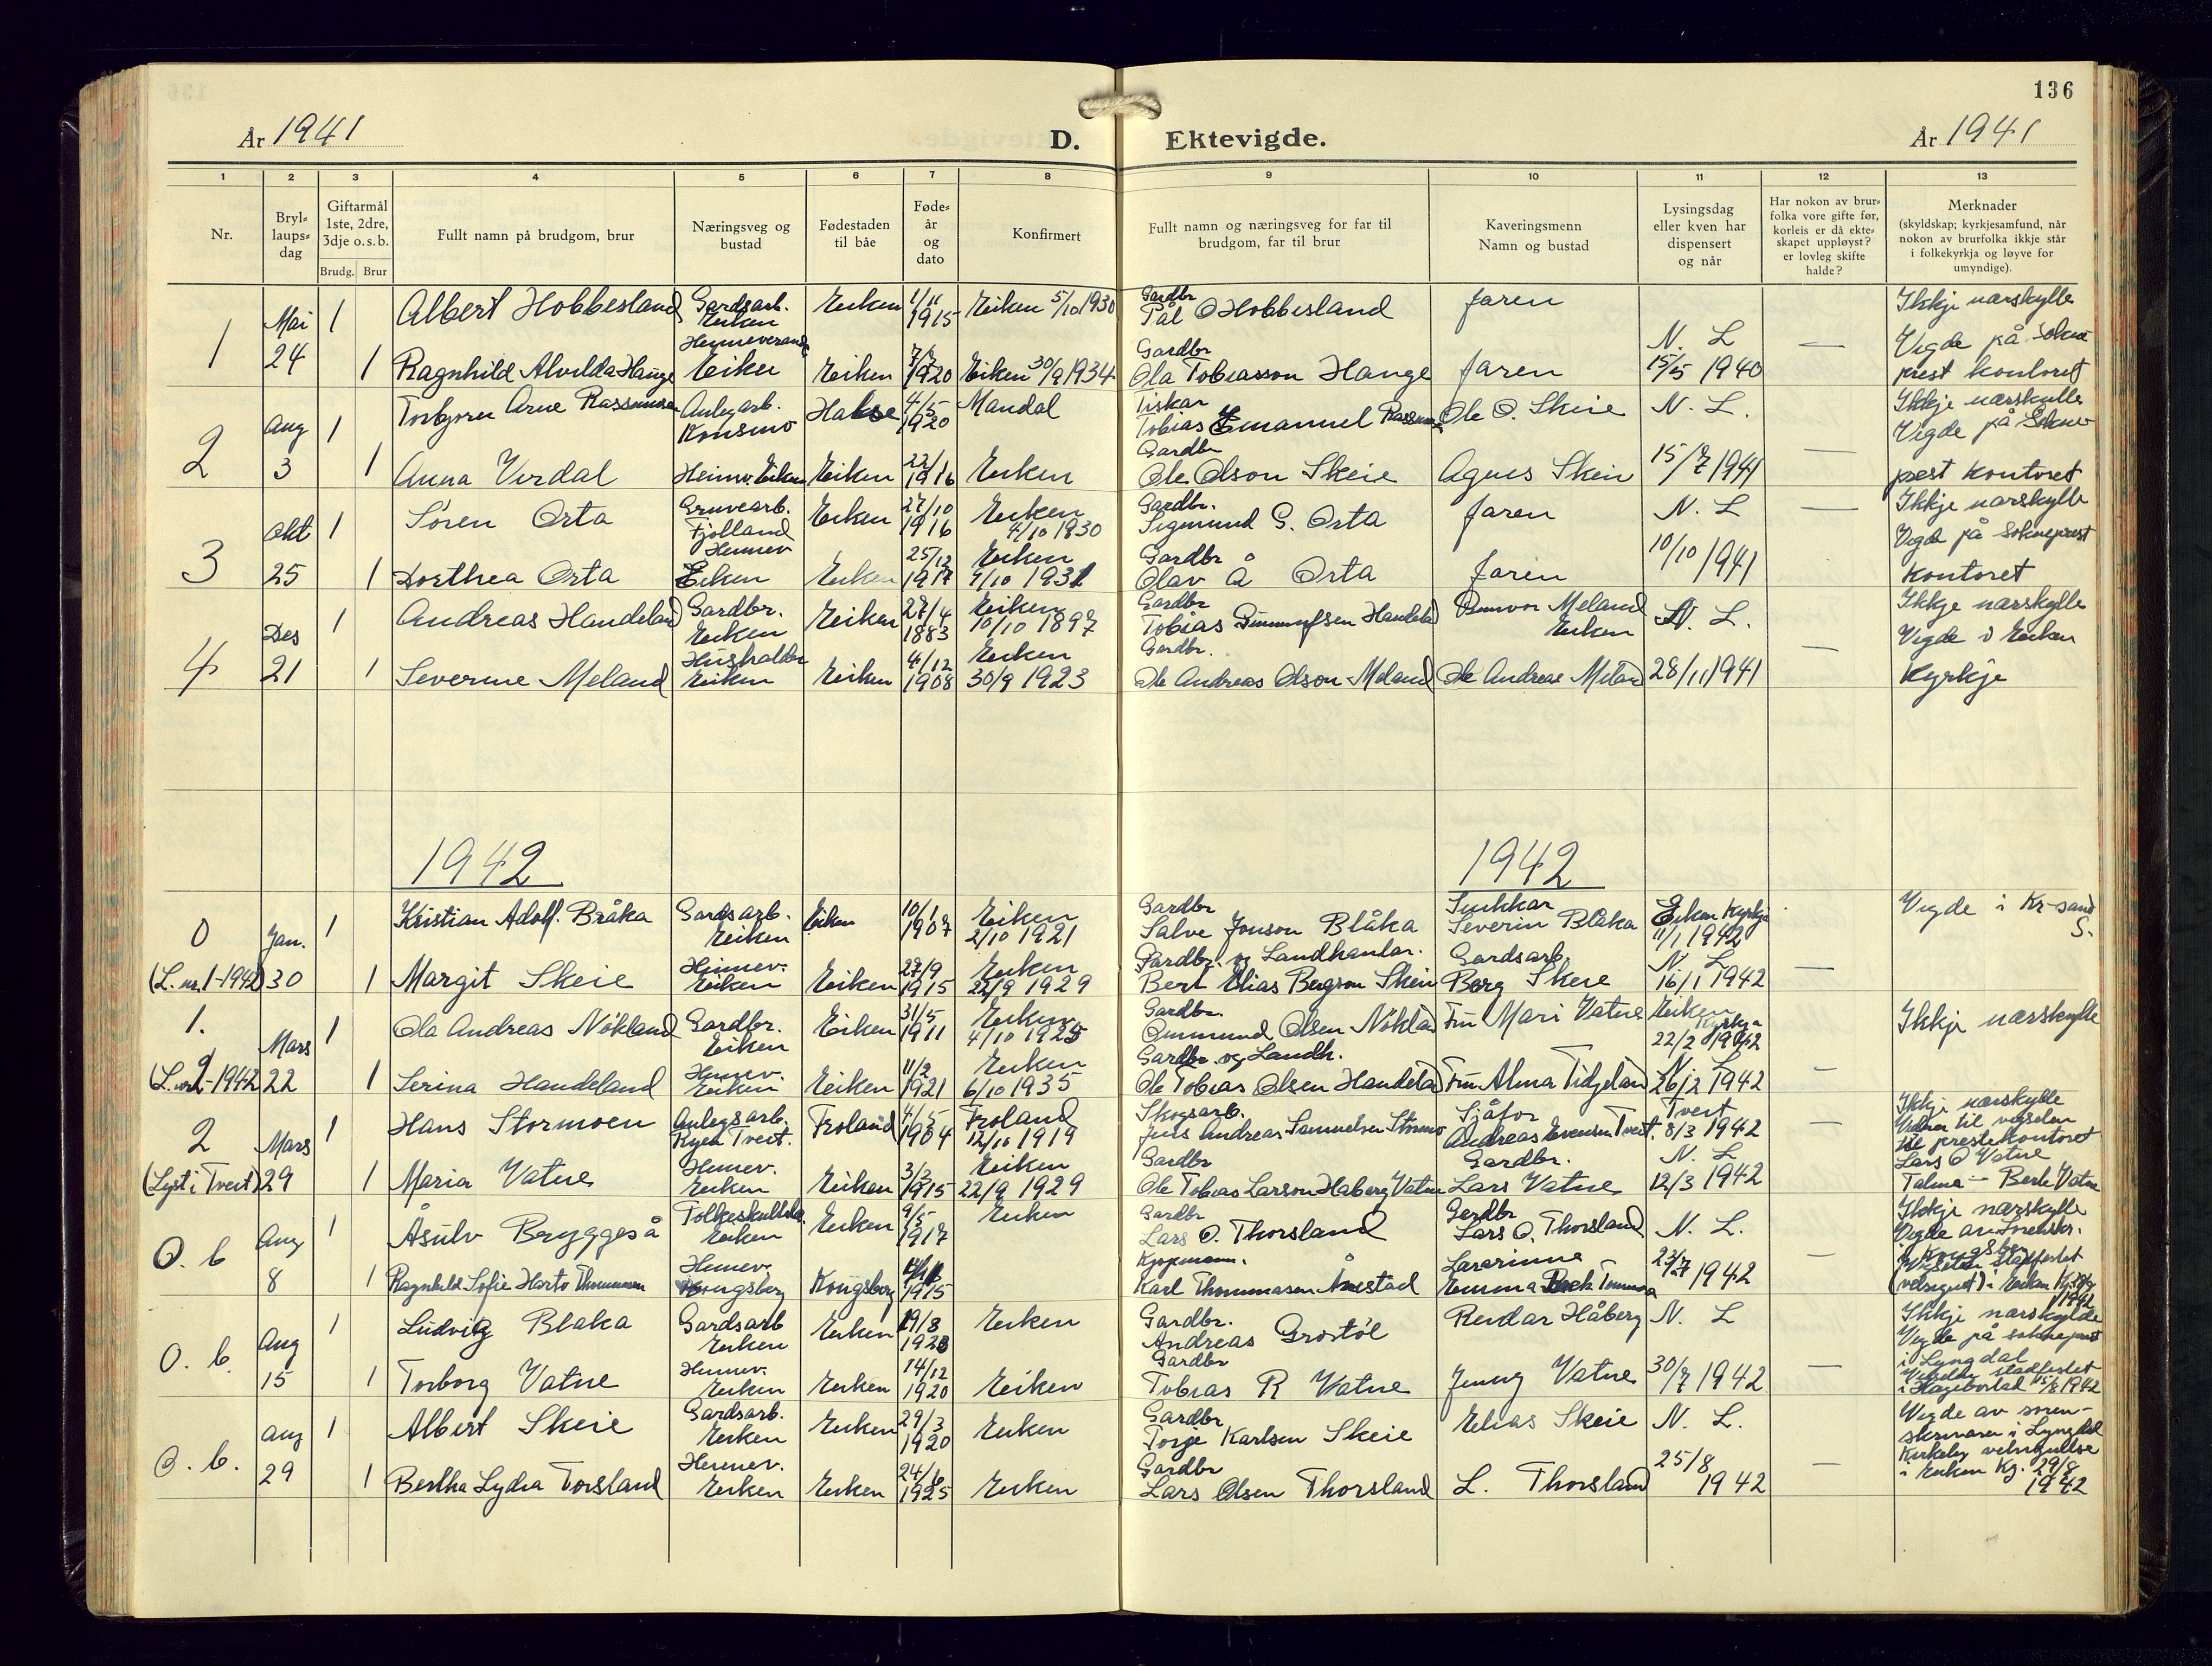 136
År 1941
D. Ektevigde.
År 1941
1
2
3
4
5
6
7
8
9
10
11
12
13
Nr.
Bryl-
laups-
dag
Giftarmål
1ste, 2dre,
3dje o.s.b.
Brudg. Brur
Fullt namn på brudgom, brur
Næringsveg og
bustad
Fødestaden
til båe
Føde-
år
og
dato
Konfirmert
Fullt namn og næringsveg for far til
brudgom, far til brur
Kaveringsmenn
Namn og bustad
Lysingsdag
eller kven har
dispensert
og når
Har nokon av brur-
folka vore gifte før,
korleis er då ekte-
skapet uppløyst?
er lovleg skifte
halde?
Merknader
(skyldskap; kyrkjesamfund, når
nokon av brurfolka ikkje står
i folkekyrkja og løyve for
umyndige).
1
Mai
24
1
Albert Hobbesland
Gardsarb.
Eiken
Eiken
1/11
1915
Eiken 5/10 1930
Gardbr
Pål O Hobbesland
faren
Ikkje nærskylle
1
Ragnhild Alvilda Hauge
Heimeverande
Eiken
Eiken
7/7
1920
Eiken 30/9 1934
Gardbr
Ola Tobiasson Hauge
faren
N. L
15/5 1940
—
Vigde på Sokne
prest kontoret
2
Aug
3
1
Torbjørn Arne Rassmussen
Anlegarb.
Konsmo
Halse
4/5
1920
Mandal
Fiskar
Tobias Emanuel
Ole O. Skeie
N. L.
Ikkje nærskylle
Vigde på Sokne
1
Anna Virdal
Heimv. Eiken
Eiken
22/1
1916
Eiken
Gardbr
Ole Olson Skeie
Agnes Skeie
15/7 1941
—
prest kontoret
3
Okt
25
1
Søren Orta
Gruvearb.
Fjotland
Eiken
27/10
1916
Eiken
4/10 1930
Gardbr.
Sigmund S. Orta
faren
N. L
—
Ikkje nærskylle
Vigde på Sokneprest
1
Dorthea Orta
Heimev
Eiken
Eiken
25/12
1917
Eiken
4/10 1931
Gardbr
Olav Å Orta
faren
10/10 1941
kontoret
4
Des
21
1
Andreas Handeland
Gardbr.
Eiken
Eiken
27/4
1883
Eiken
10/10 1897
Gardbr
Tobias Gunnufsen Handeland
Gunvor Meland
Eiken
N. L.
Ikkje nærskylle
Vigde i Eiken
1
Severine Meland
Husholder
Eiken
Eiken
4/12
1908
Eiken
30/9 1923
Gardbr.
Ole Andreas Olson Meland
Ole Andreas Meland
28/11 1941
—
Kyrkje
1942
1942
0
(L. nr. 1-1942)
Jan.
30
1
Kristian Adolf. Blåka
Gardsarb.
Eiken
Eiken
10/1
1907
Eiken
2/10 1921
Gardbr
Salve Jonson Blåka
Snikkar
Severin Blåka
Eiken Kyrkje
11/1 1942
Vigde i Kr-sand
S.
1
Margit Skeie
Heimev.
Eiken
Eiken
27/9
1915
Eiken
22/9 1929
Gardbr. og Landhanlar.
Bert Elias Bergson Skeie
Gardsarb.
Berg Skeie
N. L
16/1 1942
—
1.
(L. nr. 2-1942
Mars
22
1
Ola Andreas Nökland
Gardbr.
Eiken
Eiken
31/5
1911
Eiken
4/10 1925
Gardbr.
Gunmund Olsen Nökland
Fru Mari Vatne
Eiken
Kyrkje
22/2 1942
Ikkje nærskylde
1
Serina Handeland
Heimev.
Eiken
Eiken
11/2
1921
Eiken
6/10 1935
Gardbr og Landh.
Ole Tobias Olsen Handeland
Fru Alma Tidjeland
N. L
26/2 1942
—
2
(Lyst i Tveit)
Mars
29
1
Hans Stormoen
Anlegsarb.
Ryen Tveit.
Froland
4/5
1904
Froland
12/10 1919
Skogsarb.
Jens Andreas Samuelsen Stormo
Sjåfør
Andreas Evensen Tveit.
Tveit
8/3 1942
—
Ikkje nærskylle
Vidner til vigselen
på prestekontoret
1
Maria Vatne
Heimev.
Eiken
Eiken
3/2
1915
Eiken
22/9 1929
Gardbr
Ole Tobias Larson Haberg Vatne
Gardbr.
Lars Vatne
N. L
12/3 1942
Lars O Vatne
Talma - Berte Vatne
O. b
Aug
8
1
Åsulv Bryggeså
Folkeskullelær.
Eiken
Eiken
9/5
1917
Eiken
Gardbr
Lars O. Thorsland
Gardbr
Lars O. Thorsland
N. L.
Ikkje nærskylle
Vigde av Sorenskr.
i Kongsberg
1
Ragnhild Sofie Harto Thommasen
Heimev.
Kongsberg
Kongsberg
1915
Kjøpmann.
Karl Thommasen Åmestad
Lærerinne
Emma
23/7 1942
—
Vigselen stadfestet
(velsignet) i Eiken Kyrkje
1942
O. b.
Aug
15
1
Ludvig Blaka
Gardsarb
Eiken
Eiken
19/8
1923
Eiken
Gardbr.
Andreas Grostøl
Reidar Håberg
N. L
Ikkje nærskylde
Vigde på sokneprest
i Lyngdal
1
Torborg Vatne
Heimev.
Eiken
Eiken
14/12
1920
Eiken
Gardbr
Tobias R Vatne
Jenny Vatne
30/7 1942
—
stadfestet
i Hægebostad 15/8 1942
O. b.
Aug
29
1
Albert Skeie
Gardsarb.
Eiken
Eiken
29/3
1920
Eiken
Gardbr
Torje Karlsen Skeie
Elias Skeie
N. L.
Vigde av soren-
skrivaren i Lyngdal
1
Bertha Lydia Torsland
Heimev.
Eiken
Eiken
24/6
1925
Eiken
Gardbr
Lars Olsen Thorsland
L. Thorsland
25/8
1942
—
Kirkeleg velsignelse
i Eiken Kj. 29/8
1942